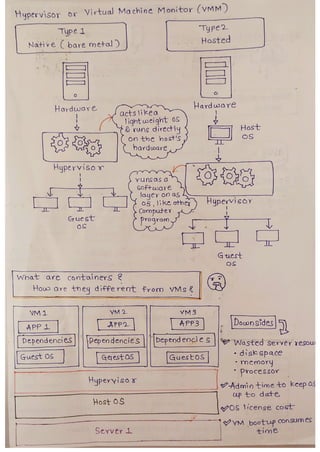 Hypervisor or Virtual Machine Monitor (VMM)
Type 1
Native (bare metal)
Type 2
Hosted
Hardware
acts like a
lightweight OS
& runs directly
on the host's
hardware
Hypervisor
Guest
OS
Hardware
Host
OS
runs as a
software
layer on as
OS, like other
computer
program.
Hypervisor
Guest
OS
What are containers?
How are they different from VMs?
VM 1
APP 1
Dependencies
Guest OS
VM 2
APP2
Dependencies
Guest OS
VM 3
APP3
Dependencies
Guest OS
Hypervisor
Host OS
Server 1
Downsides
Wasted server resou
• disk space
• memory
• processor
Admin time to keep OS
up to date
OS license cost
VM bootup consumes
time